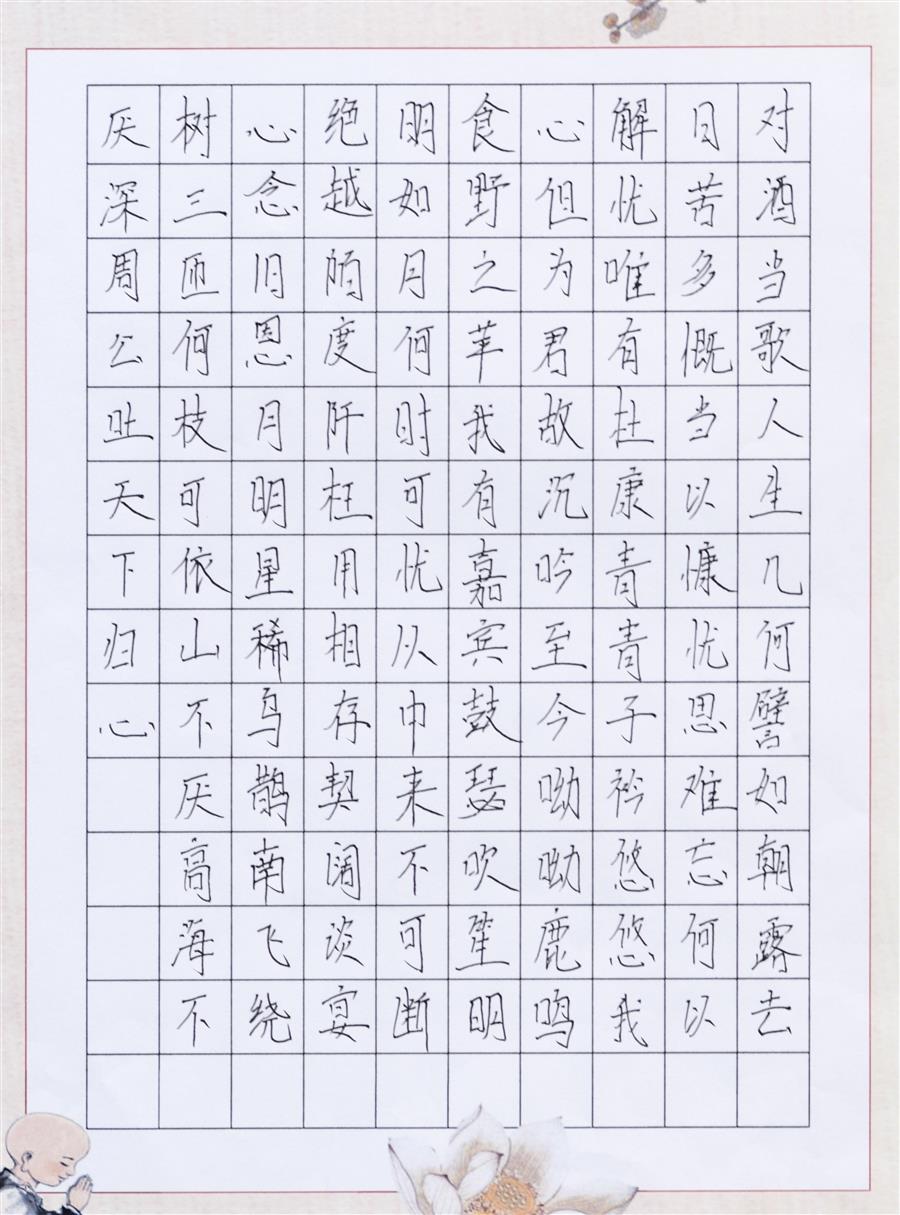 对酒当歌人生几何譬如朝露去
日苦多慨当以慷忧思难忘何以
解忧唯有杜康青青子衿悠悠我
心但为君故沉吟至今呦呦鹿鸣
食野之苹我有嘉宾鼓瑟吹笙明
明如月何时可忧从中来不可断
绝越陌度阡枉用相存契阔谈宴
心念旧恩月明星稀乌鹊南飞绕
树三匝何枝可依山不厌高海不
厌深周公吐天下归心